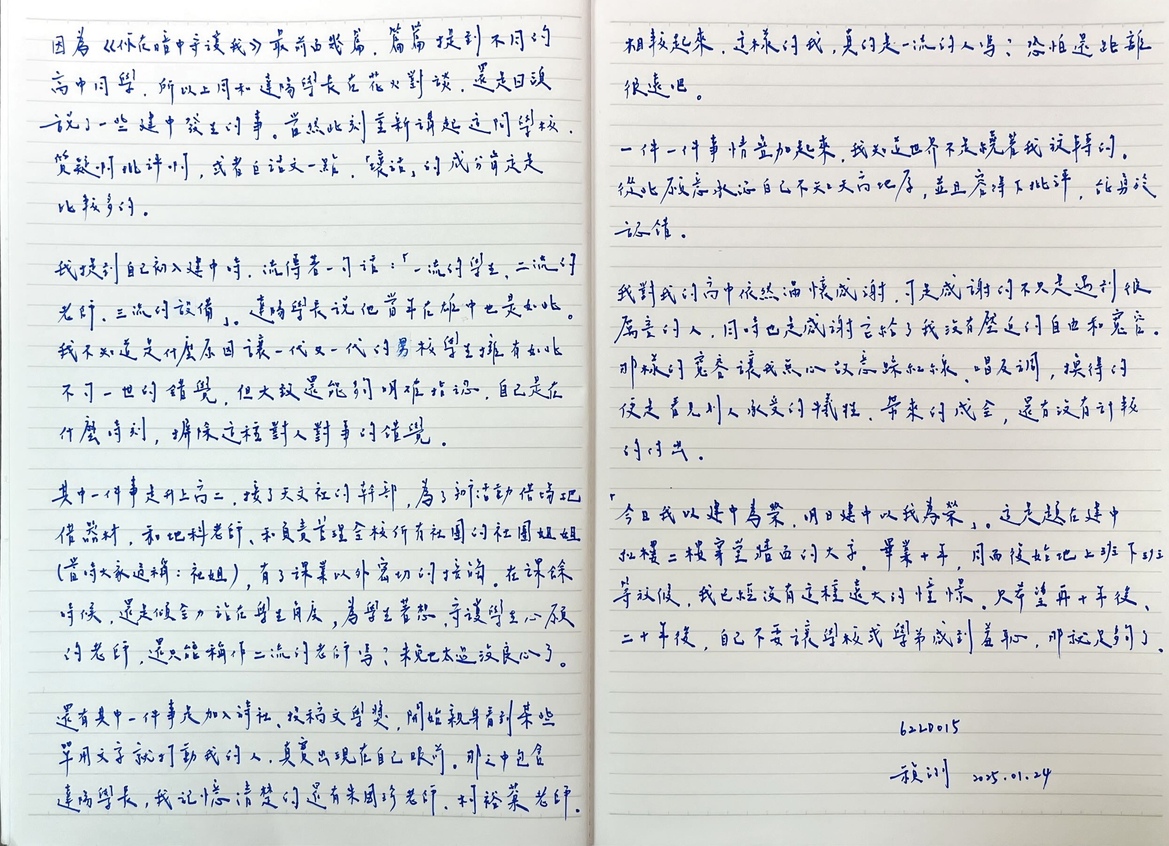 因為《你在暗中守護我》最前面幾篇，篇篇提到不同的
高中同學，所以上周和達陽學長在花火對談，還是日沒
說了一些建中發生的事。當然此刻重新講起這間學校，
質疑啊批評啊，或者白話文一點，「壞話」的成分肯定是
比較多的。
我提到自己初入建中時，流傳著一句話：「一流的學生，二流的
老師，三流的設備」。達陽學長說他當年在雄中也是如此。
我不知道是什麼原因讓一代又一代的男校學生擁有如此
不可一世的錯覺，但大致還能夠明確指認，自己是在
什麼時刻，摒除這種對人對事的錯覺。
其中一件事是升上高二，接了天文社的幹部，為了辦活動借場地
借器材，和地科老師、和負責管理全校所有社團的社團姐姐
（當時大家通稱：社姐），有了課業以外密切的接洽。在課餘
時候，還是傾全力站在學生角度，為學生著想、守護學生心願
的老師，還只能稱作二流的老師嗎？未免也太過沒良心了。
還有其中一件事是加入詩社、投稿文學獎，開始親身看到某些
單用文字就打動我的人，真實出現在自己眼前。那之中包含
達陽學長，我記憶清楚的還有朱國珍老師、柯裕棻老師。
相較起來，這樣的我，真的是一流的人嗎？恐怕還距離
很遠吧。
一件一件事情疊加起來，我知道世界不是繞著我設轉的。
從此願意承認自己不知天高地厚，並且容得下批評，能勇於
認錯。
我對我的高中依然滿懷感謝，可是感謝的不只是遇到很
厲害的人，同時也是感謝它給了我沒有壓迫的自由和寬容。
那樣的寬容讓我無心故意踩紅線、唱反調，換得的
便是看見別人承受的犧牲、帶來的成全，還有沒有計較
的付出。
「今日我以建中為榮，明日建中以我為榮」。這是題在建中
紅樓二樓穿堂牆面的大字。畢業十年，周而復始地上班下班
等放假，我已經沒有這種遠大的憧憬。只希望再十年後、
二十年後，自己不要讓學校或學弟感到羞恥，那就足夠了。
622D015
禎測 2025.01.24